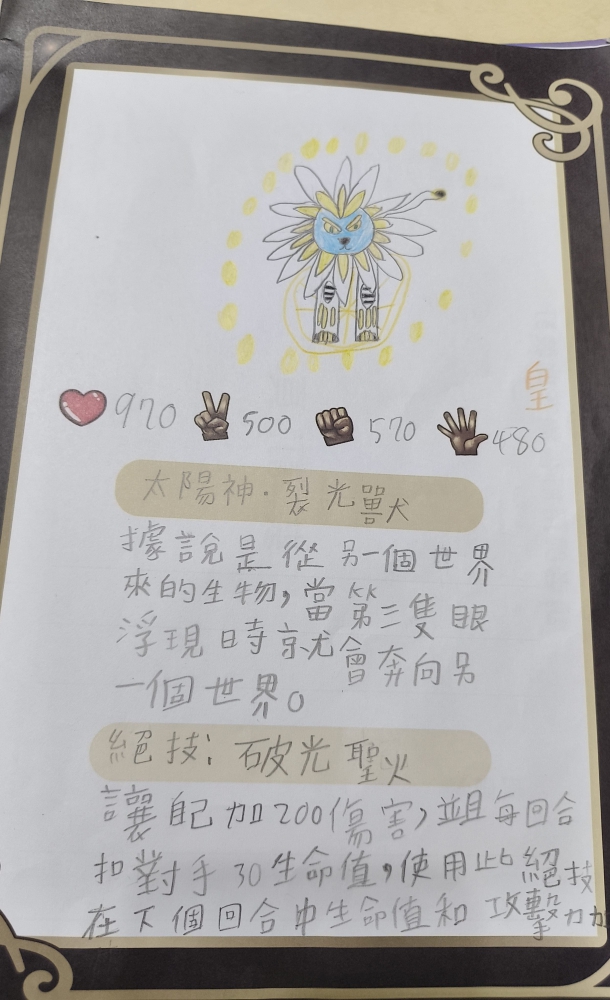 皇
970 500 570 480
太陽神·裂光獸
據說是從另一個世界
來的生物,當第三隻眼
浮現時就會奔向另
一個世界。
絕技:破光聖火
讓自己加200傷害,並且每回合
扣對手30生命值,使用此絕技
在下個回合中生命值和攻擊力加